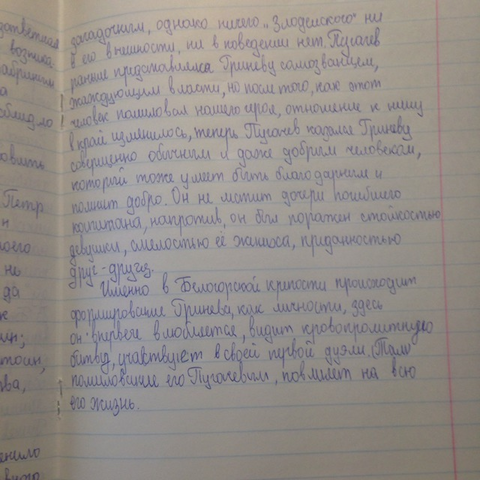 загадочным, однако ничего „Злодейского" ни
в его внешности, ни в поведении нет. Пугачев
раньше представлялся Гриневу самозванцем,
жаждующим власти, но после того, как этот
человек помиловал нашего героя, отношение к нему
в край изменилось, теперь Пугачев казался Гриневу
совершенно обычным и даже добрым человеком,
который тоже умеет быть благодарным и
помнит добро. Он не мстит дочери погибшего
капитана, напротив, он был поражен стойкостью
девушки, смелостью её жениха, приданностью
друг-другу.
Именно в Белогорской крепости происходит
формирование Гринева, как личности, здесь
он впервые влюбляется, видит кровопролитную
битву, участвует в своей первой дуэли.
помилование его Пугачевым, повлияет на всю
его жизнь.
возника
Петр
н
не
да
ва,